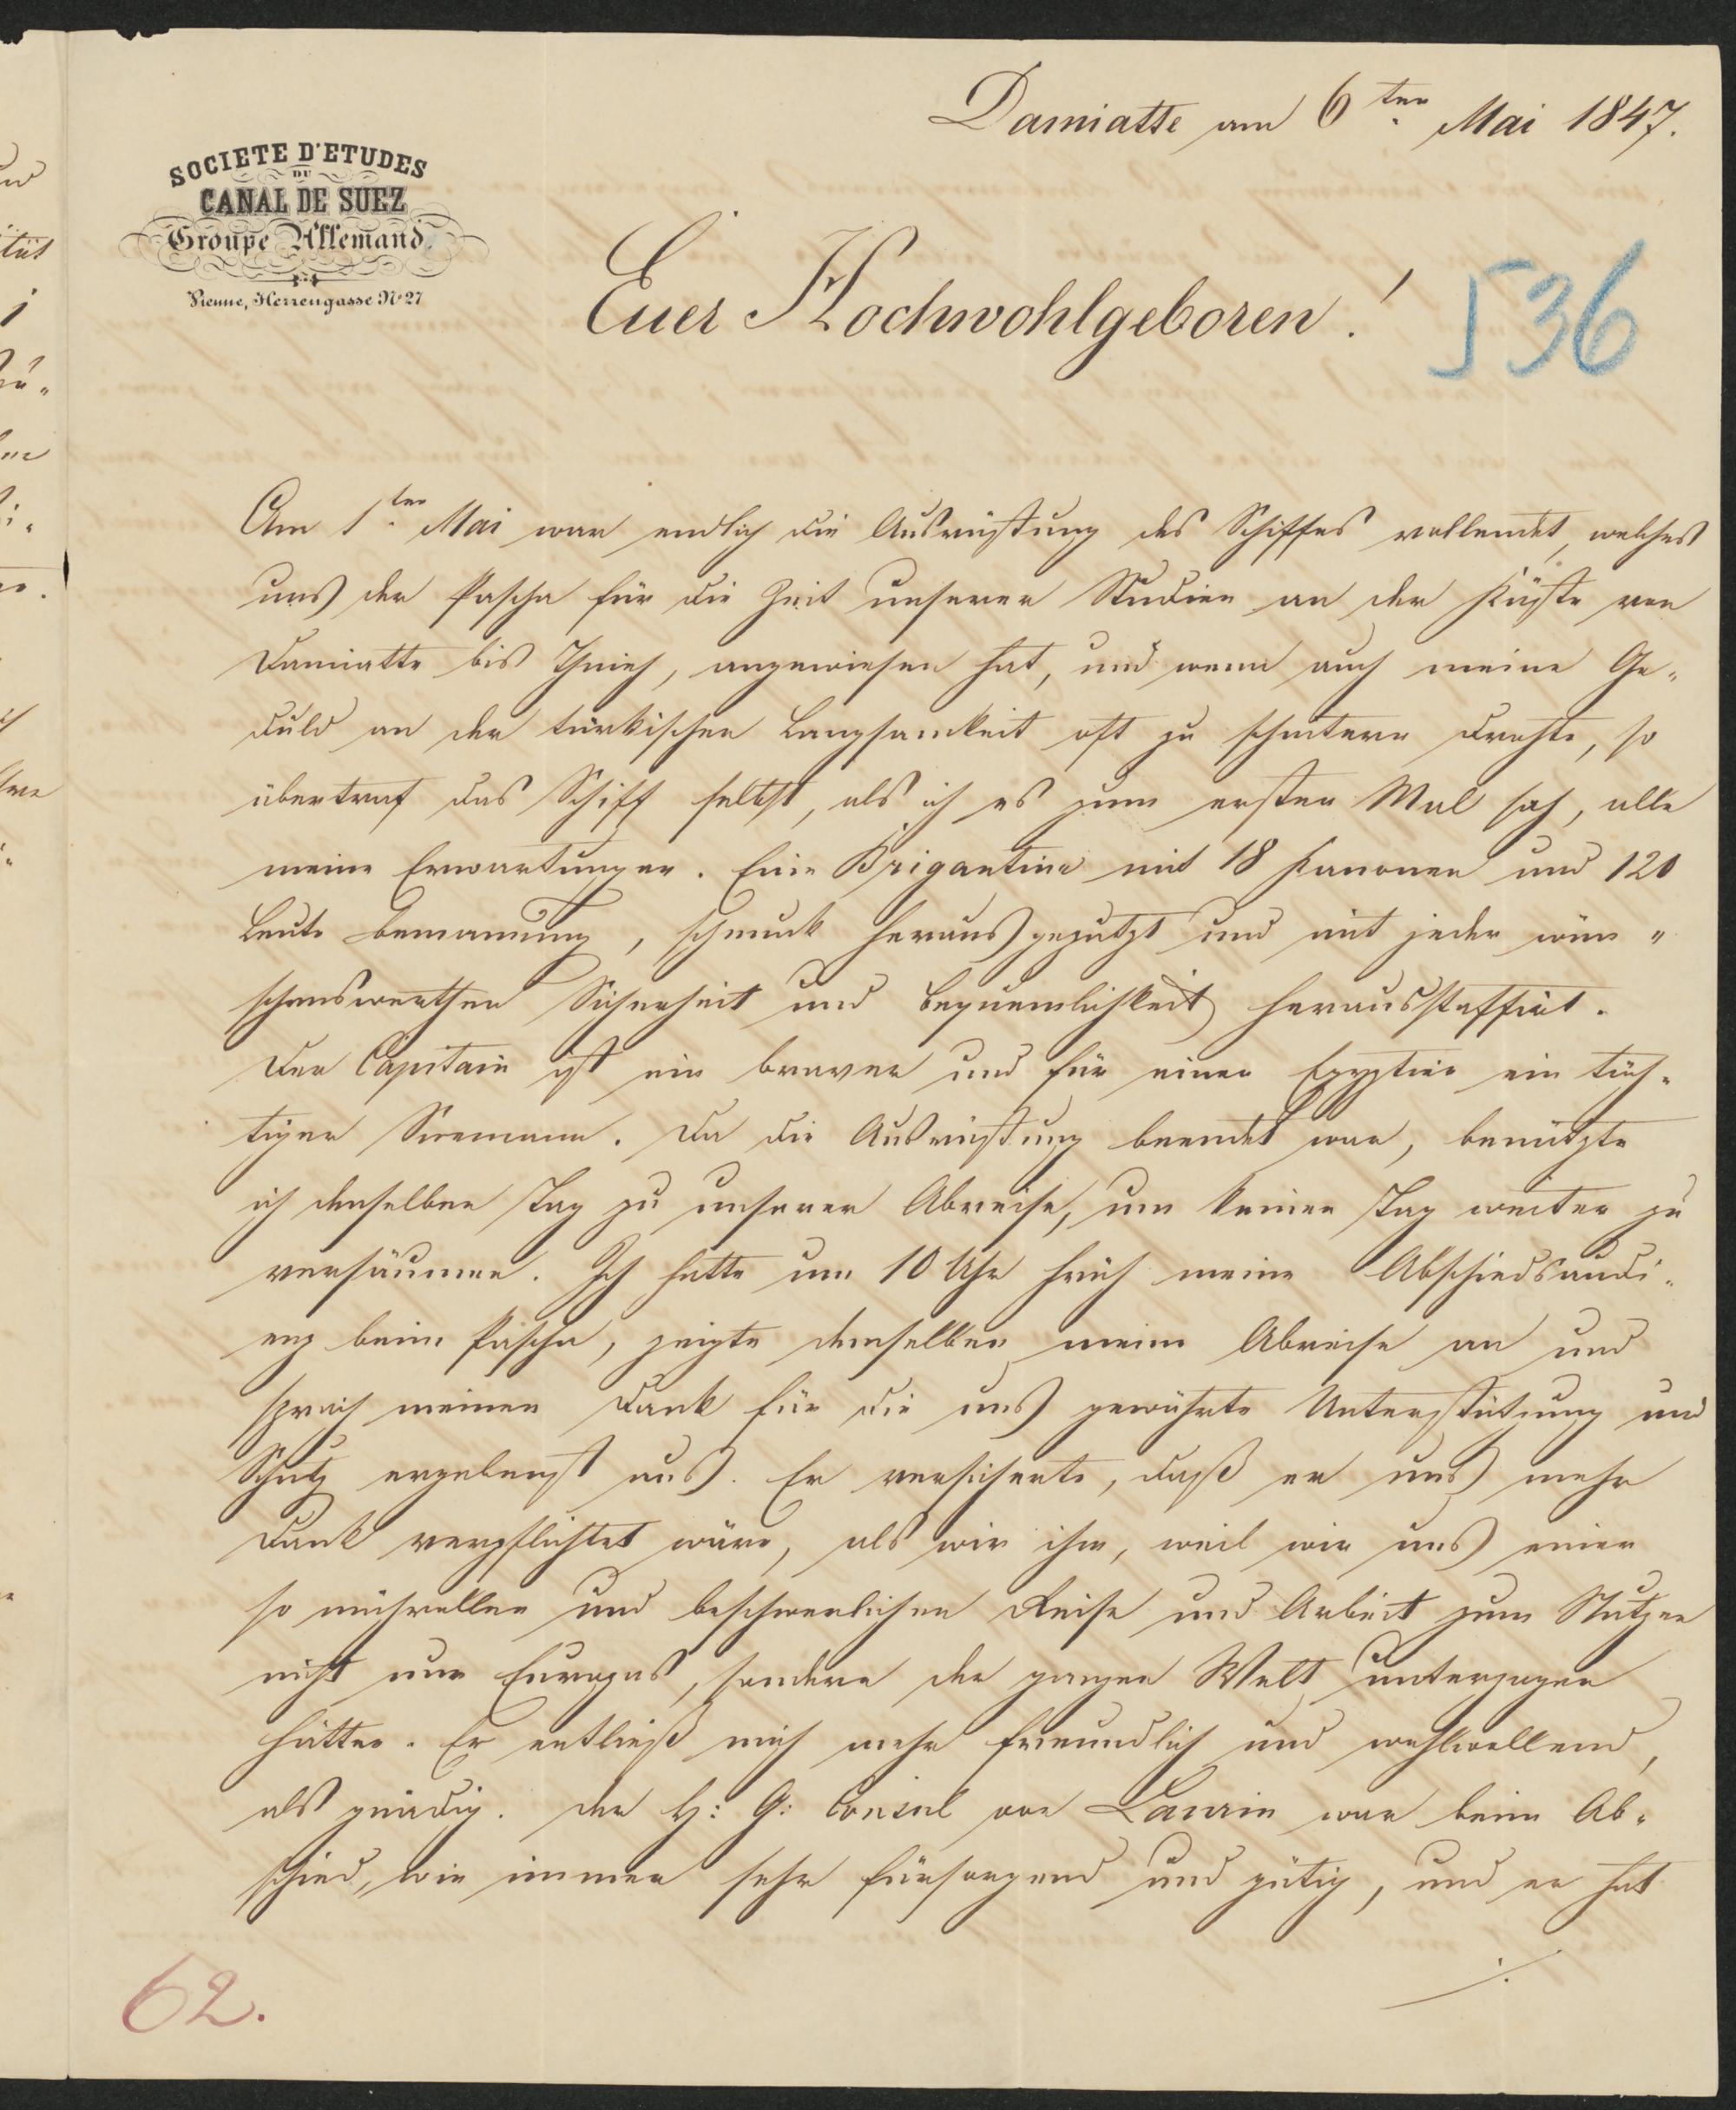 Damiatte am 6ten Mai 1847.
SOCIETE D'ETUDES
DU
CANAL DE SUEZ
Groupe Allemand
Vienne, Herrengasse No 27
Euer Hochwohlgeboren!
536
Am 1ten Mai war endlich die Ausrüstung des Schiffes vollendet, welches
uns der Pascha für die Zeit unserer Studien an der Küste von
Damiatte bis Thineh, angewiesen hat, und wenn auch meine Ge-
duld an der türkischen Langsamkeit oft zu scheitern drohte, so
übertraf das Schiff selbst, als ich es zum ersten Mal sah, alle
meine Erwartungen. Eine Brigantine mit 18 Kanonen und 120
Leute Bemannung, schmuck herausgeputzt und mit jeder wün-
schenswerthen Sicherheit und Bequemlichkeit herausstaffirt.
Der Capitain ist ein braver und für einen Egyptier ein tüch-
tiger Seemann. Da die Ausrüstung beendet war, benützte
ich denselben Tag zu unserer Abreise, um keinen Tag weiter zu
versäumen. Ich hatte um 10 Uhr früh meine Abschiedsaudi-
enz beim Pascha, zeigte demselben meine Abreise an und
sprach meinen Dank für die uns gewährte Unterstützung und
Schutz ergebenst aus. Er versicherte, daß er uns mehr
Dank verpflichtet wäre, als wir ihm, weil wir uns einer
so mühevollen und beschwerlichen Reise und Arbeit zum Nutzen
nicht nur Europas, sondern der ganzen Welt unterzogen
hätten. Er entließ mich mehr freundlich und wohlwollend,
als gnädig. Der H: G: Consul von Laurin war beim Ab-
schied, wie immer sehr fürsorgend und gütig, und er hat
./.
62.